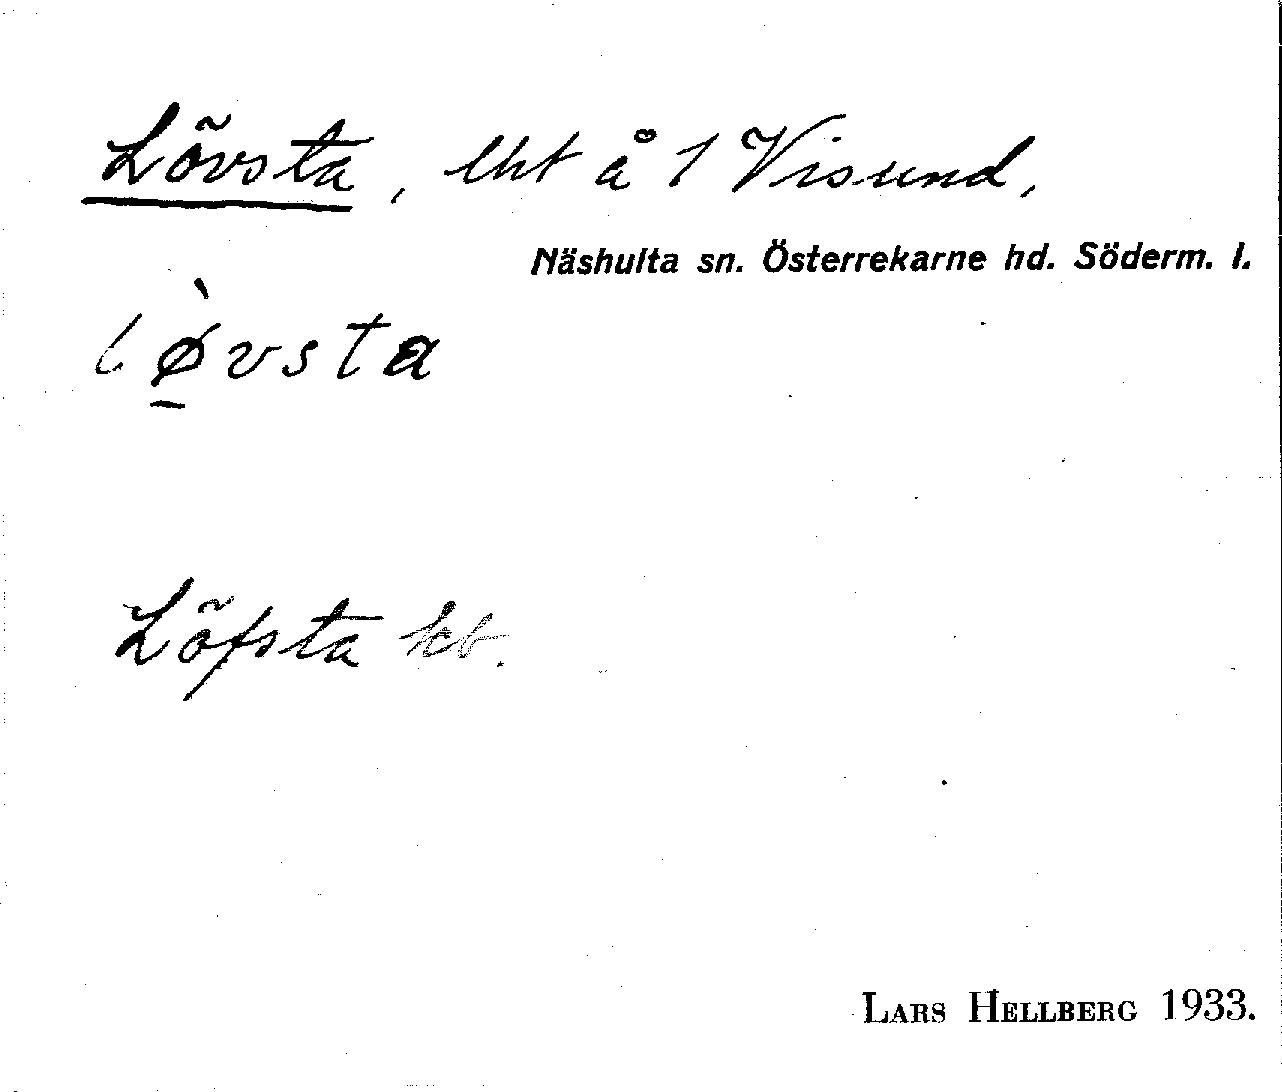 Lövsta, lht å 1 Visund,
Näshulta sn. Österrekarne hd. Söderm. l.
lø̀vsta
Löfsta kb.
LARS HELLBERG 1933.